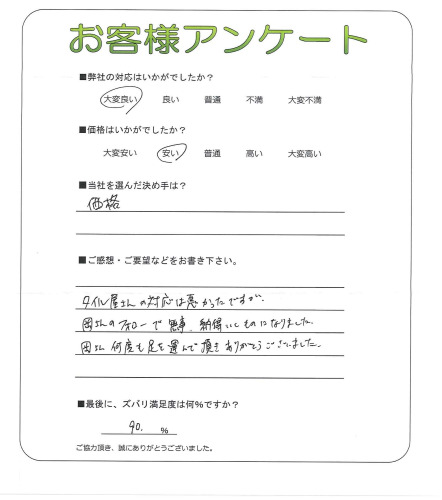 お客様アンケート
■弊社の対応はいかがでしたか？
大変良い 良い 普通 不満 大変不満
■価格はいかがでしたか？
大変安い 安い 普通 高い 大変高い
■当社を選んだ決め手は？
価格
■ご感想・ご要望などをお書き下さい。
タイル屋さんの対応は悪かったですが、
岡さんのフォローで無事、納得いくものになりました。
岡さん何度も足を運んで頂きありがとうございました。
■最後に、ズバリ満足度は何%ですか？
90. %
ご協力頂き、誠にありがとうございました。